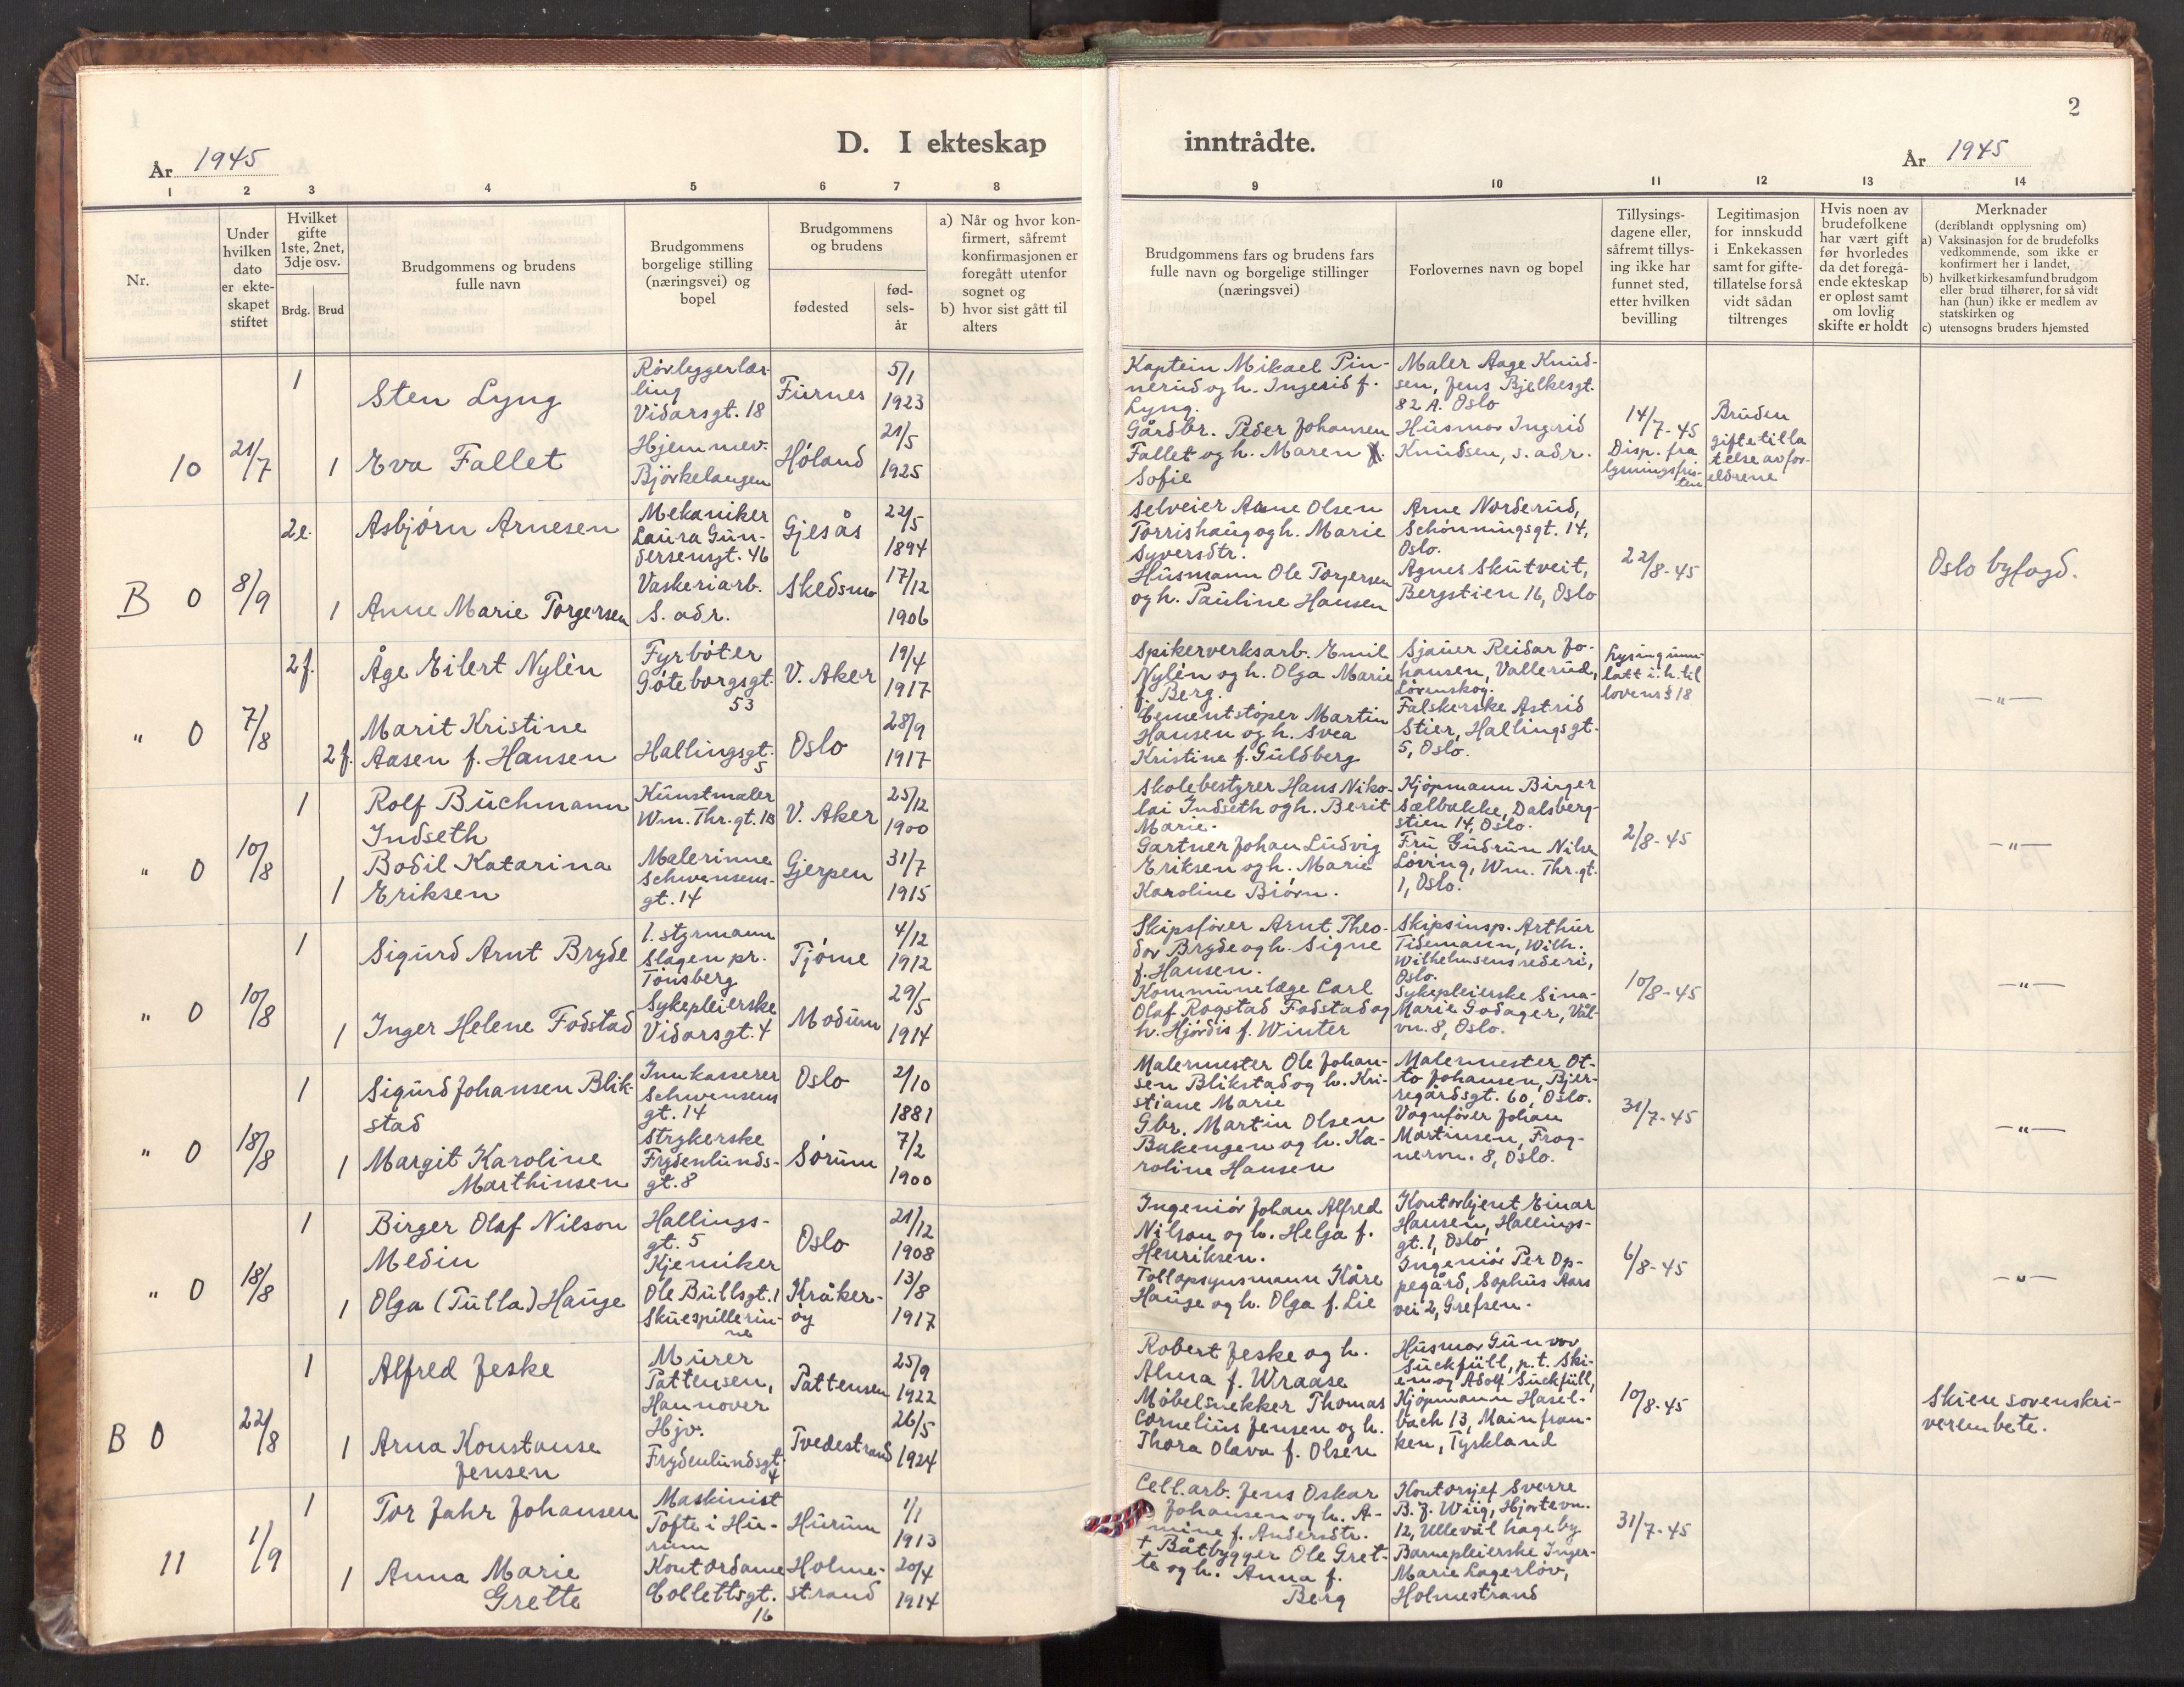 2
D. I ekteskap inntrådte.
År 1945
År 1945
1 2 3 4 5 6 7 8 9 10 11 12 13 14
Nr.
Under
hvilken
dato
er ekte-
skapet
stiftet
Hvilket
gifte
1ste, 2net,
3dje osv.
Brdg. Brud
Brudgommens og brudens
fulle navn
Brudgommens
borgelige stilling
(næringsvei) og
bopel
Brudgommens
og brudens
fødested
fød-
sels-
år
a) Når og hvor kon-
firmert, såfremt
konfirmasjonen er
foregått utenfor
sognet og
b) hvor sist gått til
alters
Brudgommens fars og brudens fars
fulle navn og borgelige stillinger
(næringsvei)
Forlovernes navn og bopel
Tillysings-
dagene eller,
såfremt tillys-
ing ikke har
funnet sted,
etter hvilken
bevilling
Legitimasjon
for innskudd
i Enkekassen
samt for gifte-
tillatelse for så
vidt sådan
tiltrenges
Hvis noen av
brudefolkene
har vært gift
før hvorledes
da det foregå-
ende ekteskap
er opløst samt
om lovlig
skifte er holdt
Merknader
(deriblandt opplysning om)
a) Vaksinasjon for de brudefolks
vedkommende, som ikke er
konfirmert her i landet,
b) hvilket kirkesamfund brudgom
eller brud tilhører, for så vidt
han (hun) ikke er medlem av
statskirken og
c) utensogns bruders hjemsted
10
21/7
1
Sten Lyng
Rörleggerlær-
ling
Vidarsgt. 18
Furnes
5/1
1923
1
Eva Fallet
Hjemmev.
Björkelangen
Höland
21/5
1925
Kaptein Mikael Pin-
nerud og h. Ingerid f.
Lyng.
Gårdbr. Peder Johansen
Fallet og h. Maren
Sofie
Maler Aage Knud-
sen, Jens Bjelkesgt.
82 A. Oslo
Husmor Ingrid
Knudsen, s. adr.
14/7-45
Disp. fra
lysningsfris-
ten
Bruden
giftetilla
telse av for-
eldrene
B 0
8/9
2e.
Asbjörn Arnesen
Mekaniker
Laura Gun-
dersensgt. 46
Gjesås
22/5
1894
1
Anne Marie Torgersen
Vaskeriarb.
S. adr.
Skedsmo
17/12
1906
Selveier Arne Olsen
Torrishaug og h. Marie
Syversdtr.
Husmann Ole Torgersen
og h. Pauline Hansen
Arne Norderud,
Schönningsgt. 14,
Oslo.
Agnes Skutveit,
Bergstien 16, Oslo
22/8-45
Oslo byfogd.
" 0
7/8
2f.
Åge Eilert Nylén
Fyrböter
Göteborgsgt.
53
V. Aker
19/4
1917
2f.
Marit Kristine
Aasen f. Hansen
Hallingsgt.
5
Oslo
28/9
1917
Spikerverksarb. Emil
Nylén og h. Olga Marie
f. Berg.
Cementstöper Martin
Hansen og h. Svea
Kristine f. Guldberg
Sjauer Reidar Jo-
hansen, Vallerud,
Lörenskog.
Falskerske Astrid
Stier, Hallingsgt.
5, Oslo.
Lysing unn-
latt i. h. til
lovens § 18
—"—
" 0
10/8
1
Rolf Buchmann
Indseth
Kunstmaler
Wm. Thr. gt. 1B
V. Aker
25/12
1900
1
Bodil Katarina
Eriksen
Malerinne
Schwensens-
gt. 14
Gjerpen
31/7
1915
Skolebestyrer Hans Niko-
lai Indseth og h. Berit
Marie.
Gartner Johan Ludvig
Eriksen og h. Marie
Karoline Biörn.
Kjöpmann Birger
Sælbakke, Dalsberg-
stien 14, Oslo.
Fru Gudrun Nilsen
Löving, Wm. Thr. gt.
1, Oslo.
2/8-45
—"—
" 0
10/8
1
Sigurd Arnt Bryde
1. styrmann
Slagen pr.
Tönsberg
Tjöme
4/12
1912
1
Inger Helene Fodstad
Sykepleierske
Vidarsgt. 4
Modum
29/5
1914
Skipsförer Arnt Theo-
dor Bryde og h. Signe
f. Hansen.
Kommunelæge Carl
Olaf Rogstad Fodstad og
h. Hjördis f. Winter
Skipsinsp. Arthur
Tidemann, Wilh.
Wilhelmsens rederi,
Oslo.
Sykepleierske Sina-
Marie Godager, Vål-
vn. 8, Oslo.
10/8-45
—"—
" 0
18/8
1
Sigurd Johansen Blik-
stad
Innkasserer
Schwensens
gt. 14
Oslo
2/10
1881
1
Margit Karoline
Marthinsen
Strykerske
Frydenlunds-
gt. 8
Sörum
7/2
1900
Malermester Ole Johan-
sen Blikstad og h. Kri-
stiane Marie
Gbr. Martin Olsen
Bakengen og h. Ka-
roline Hansen
Malermester Ot-
to Johansen, Bjer-
regårdsgt. 60, Oslo.
Vognförer Johan
Martinsen, Frog-
nervn. 8, Oslo.
31/7-45
—"—
" 0
18/8
1
Birger Olaf Nilson
Medin
Hallings-
gt. 5
Kjemiker
Oslo
21/12
1908
1
Olga (Tulla) Hauge
Ole Bullsgt. 1
Skuespillerin-
ne
Kråker-
öy
13/8
1917
Ingeniör Johan Alfred
Nilson og h. Helga f.
Henriksen.
Tollopsynsmann Kåre
Hauge og h. Olga f. Lie
Kontorbjent Einar
Hansen, Hallings-
gt. 1, Oslo
Ingeniör Per Op-
pegård, Sophus Aars
vei 2, Grefsen.
6/8-45
—"—
B 0
22/8
1
Alfred Jeske
Murer
Pattensen,
Hannover
Pattensen
25/9
1922
1
Arna Konstanse
Jensen
Hjv.
Frydenlundsgt.
4
Tvedestrand
26/5
1924
Robert Jeske og h.
Alma f. Wraase
Möbelsnekker Thomas
Cornelius Jensen og h.
Thora Olava f. Olsen
Husmor Gunvor
Suckfüll, p.t. Ski-
en og Adolf Suckfüll,
Kjöpmann Hasel-
bach 13, Mainfran-
ken, Tyskland
10/8-45
Skien sorenskri-
verembete.
11
1/9
1
Tor Jahr Johansen
Maskinist
Tofte i Hu-
rum
Hurum
1/1
1913
1
Anna Marie
Grette
Kontordame
Collettsgt.
16
Holme-
strand
20/4
1914
Cell.arb. Jens Oskar
Johansen og h. A-
mine f. Andersdtr.
+ Båtbygger Ole Gret-
te og h. Anna f.
Berg
Kontorsjef Sverre
B. J. Wiig, Hjortevn.
12, Ullevål hageby
Barnepleierske Inger-
Marie Lagerlöv,
Holmestrand
31/7-45